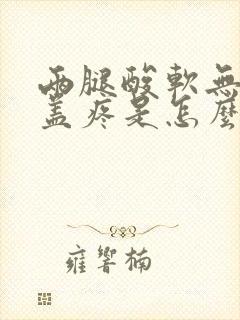 兩腿酸軟無
蓋疼是怎麼
雍響楠